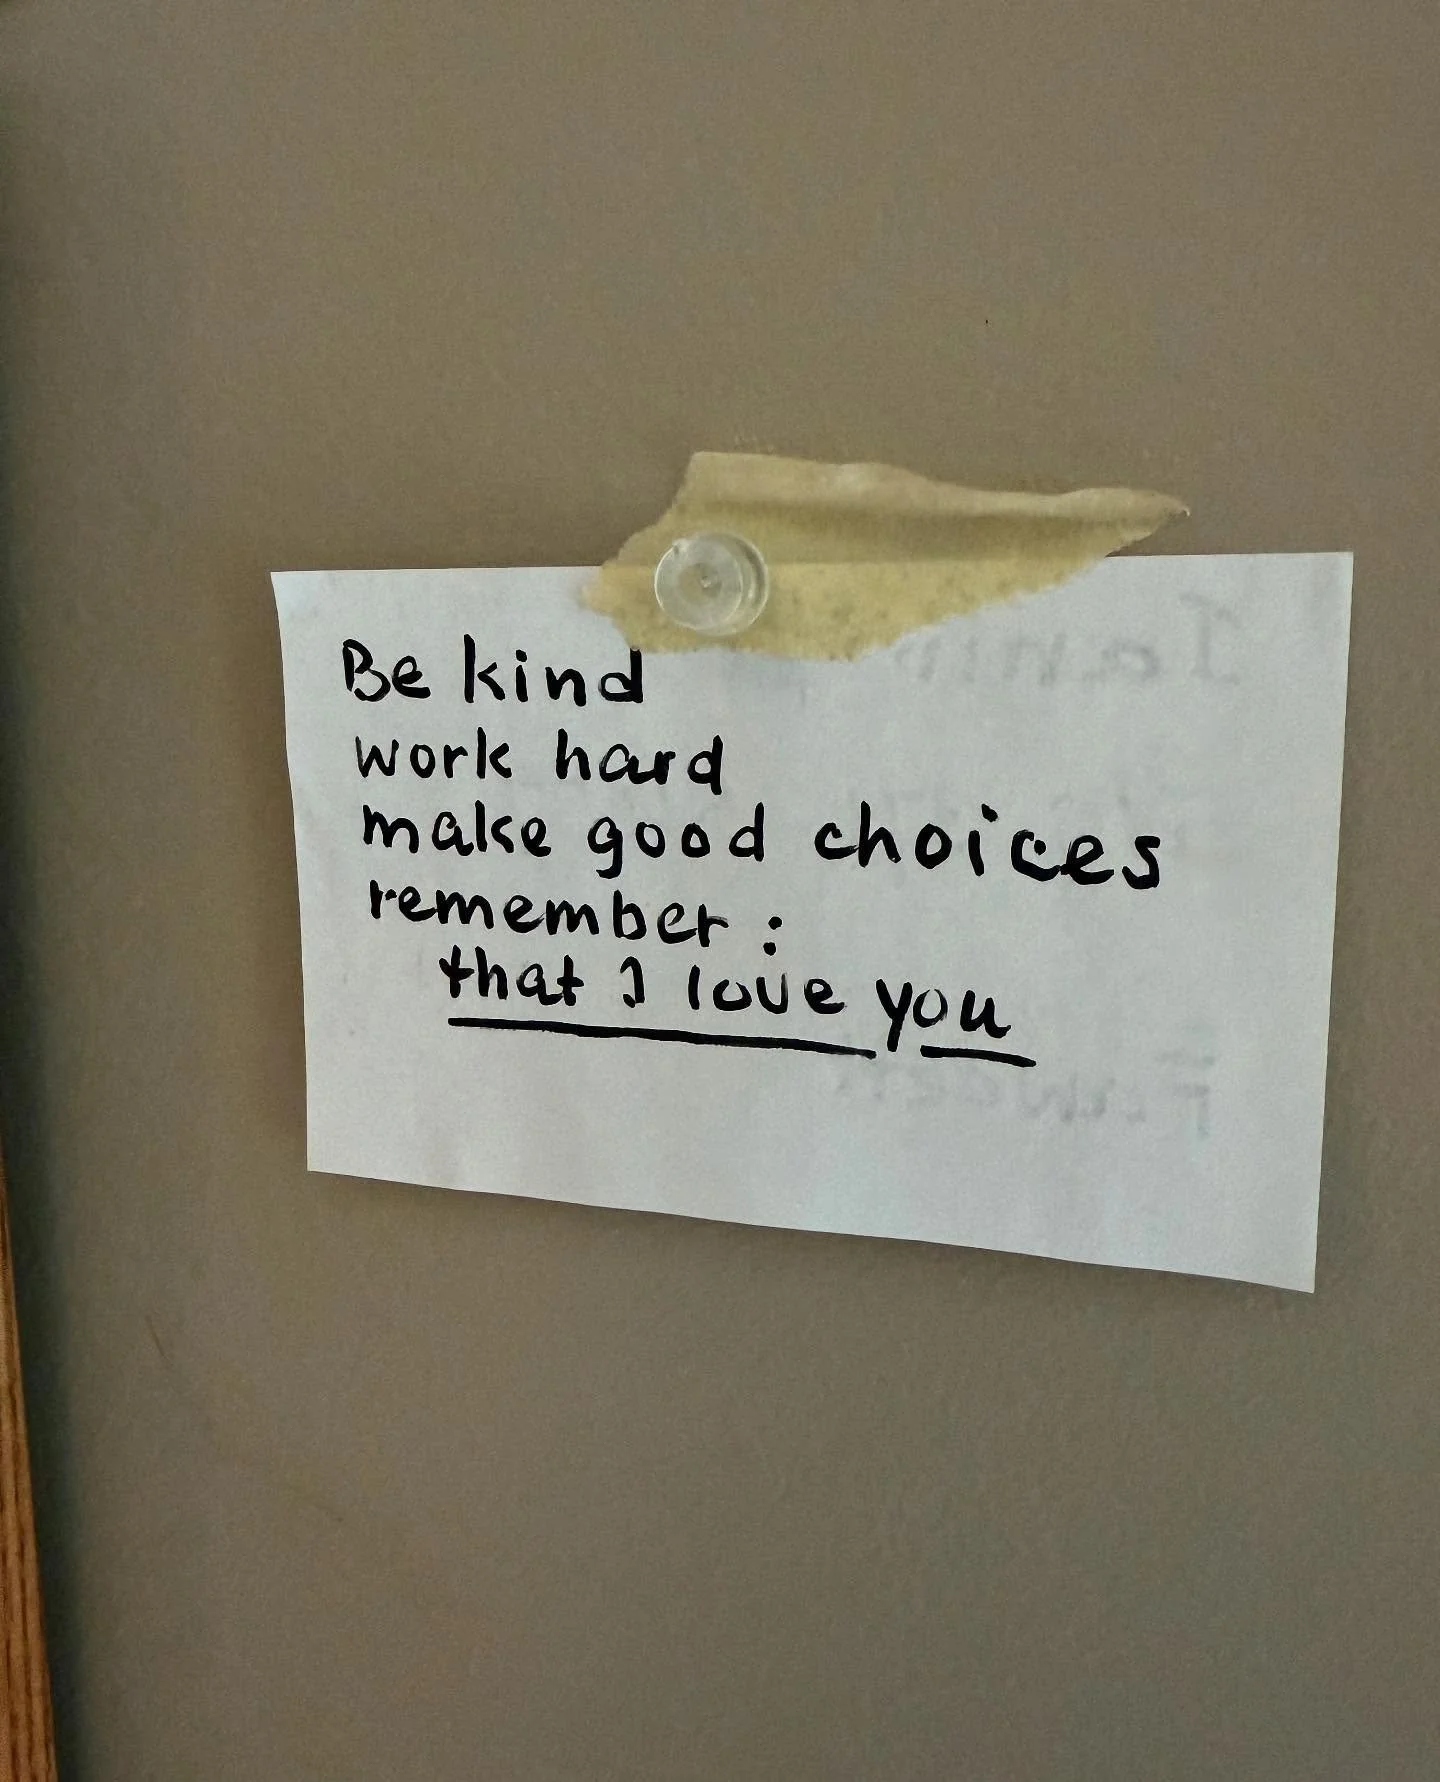 Be kind
work hard
make good choices
remember :
that I love you